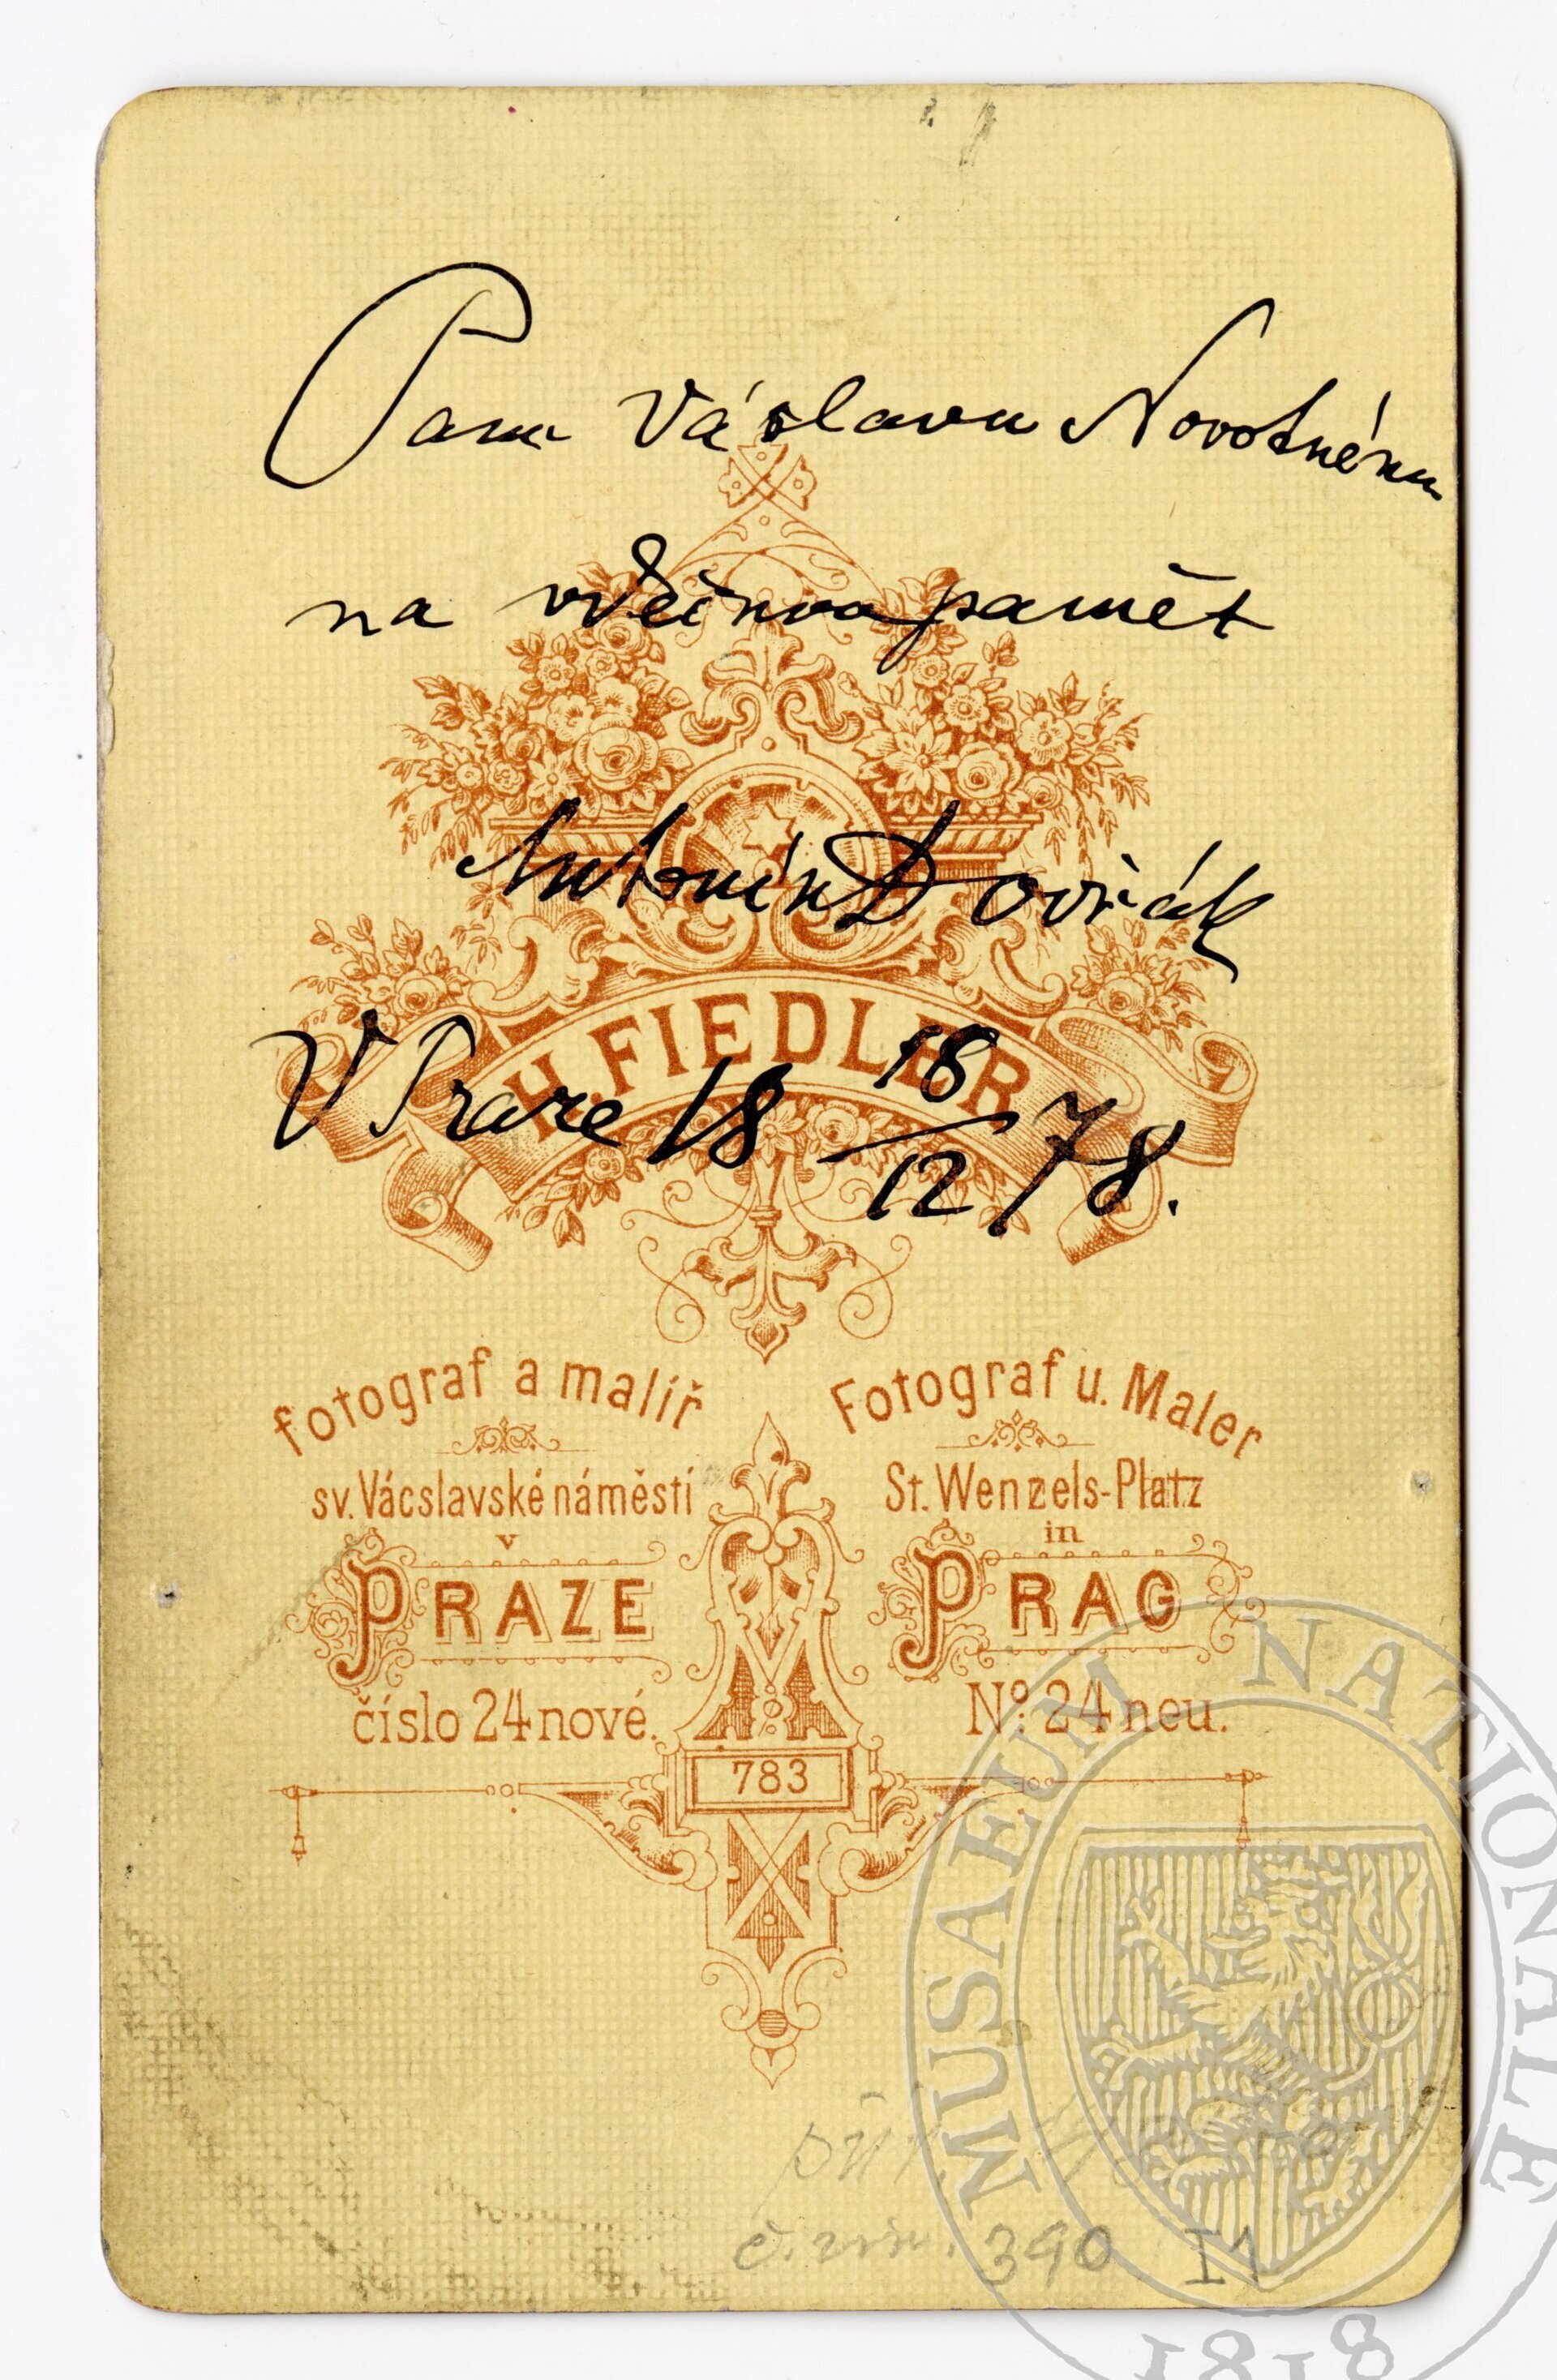 Panu Václavu Novotnému
na vděčnou pamět
Antonín Dvořák
H. FIEDLER
V Praze 18 18/12 78.
fotograf a malíř
sv. Vácslavské náměstí
v
PRAZE
číslo 24 nové.
Fotograf u. Maler
St. Wenzels-Platz
in
PRAG
No: 24 neu.
783
č. 390
MUSAEUM NATIONALE
1818